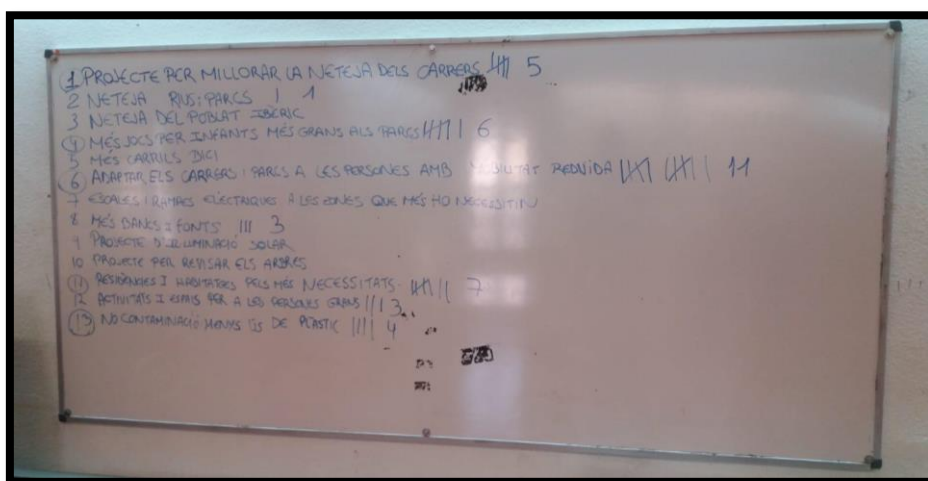 1 PROJECTE PER MILLORAR LA NETEJA DELS CARRERS 5
2 NETEJA RIUS i PARCS 1
3 NETEJA DEL POBLAT IBÈRIC
4 MÉS JOCS PER INFANTS MÉS GRANS ALS PARCS 6
5 MÉS CARRILS BICI
6 ADAPTAR ELS CARRERS I PARCS A LES PERSONES AMB MOBILITAT REDUIDA 11
7 ESCALES I RAMPES ELÈCTRIQUES A LES ZONES QUE MÉS HO NECESSITIN
8 MÉS BANCS I FONTS 3
9 PROJECTE D'IL·LUMINACIÓ SOLAR
10 PROJECTE PER REVISAR ELS ARBRES
11 RESIDÈNCIES I HABITATGES PELS MÉS NECESSITATS. 7
12 ACTIVITATS I ESPAIS PER A LES PERSONES GRANS 3
13 NO CONTAMINACIÓ MENYS ÚS DE PLÀSTIC 4